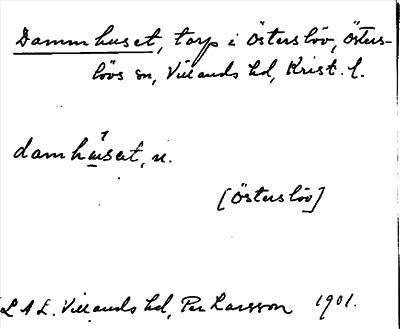 Dammhuset, torp i Österslöv, Öster-
lövs sn, Villands hd, Krist. l.
damhu̲set, n.
[Österslöv]
L A L. Villands hd, Per Larsson 1901.